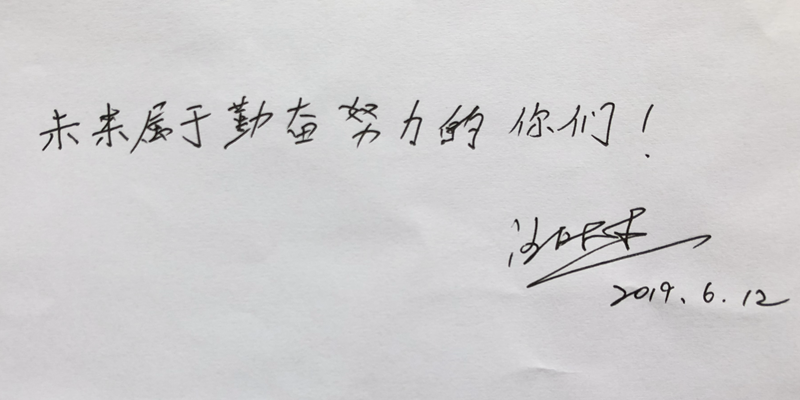 未来属于勤奋努力的你们！
2019.6.12